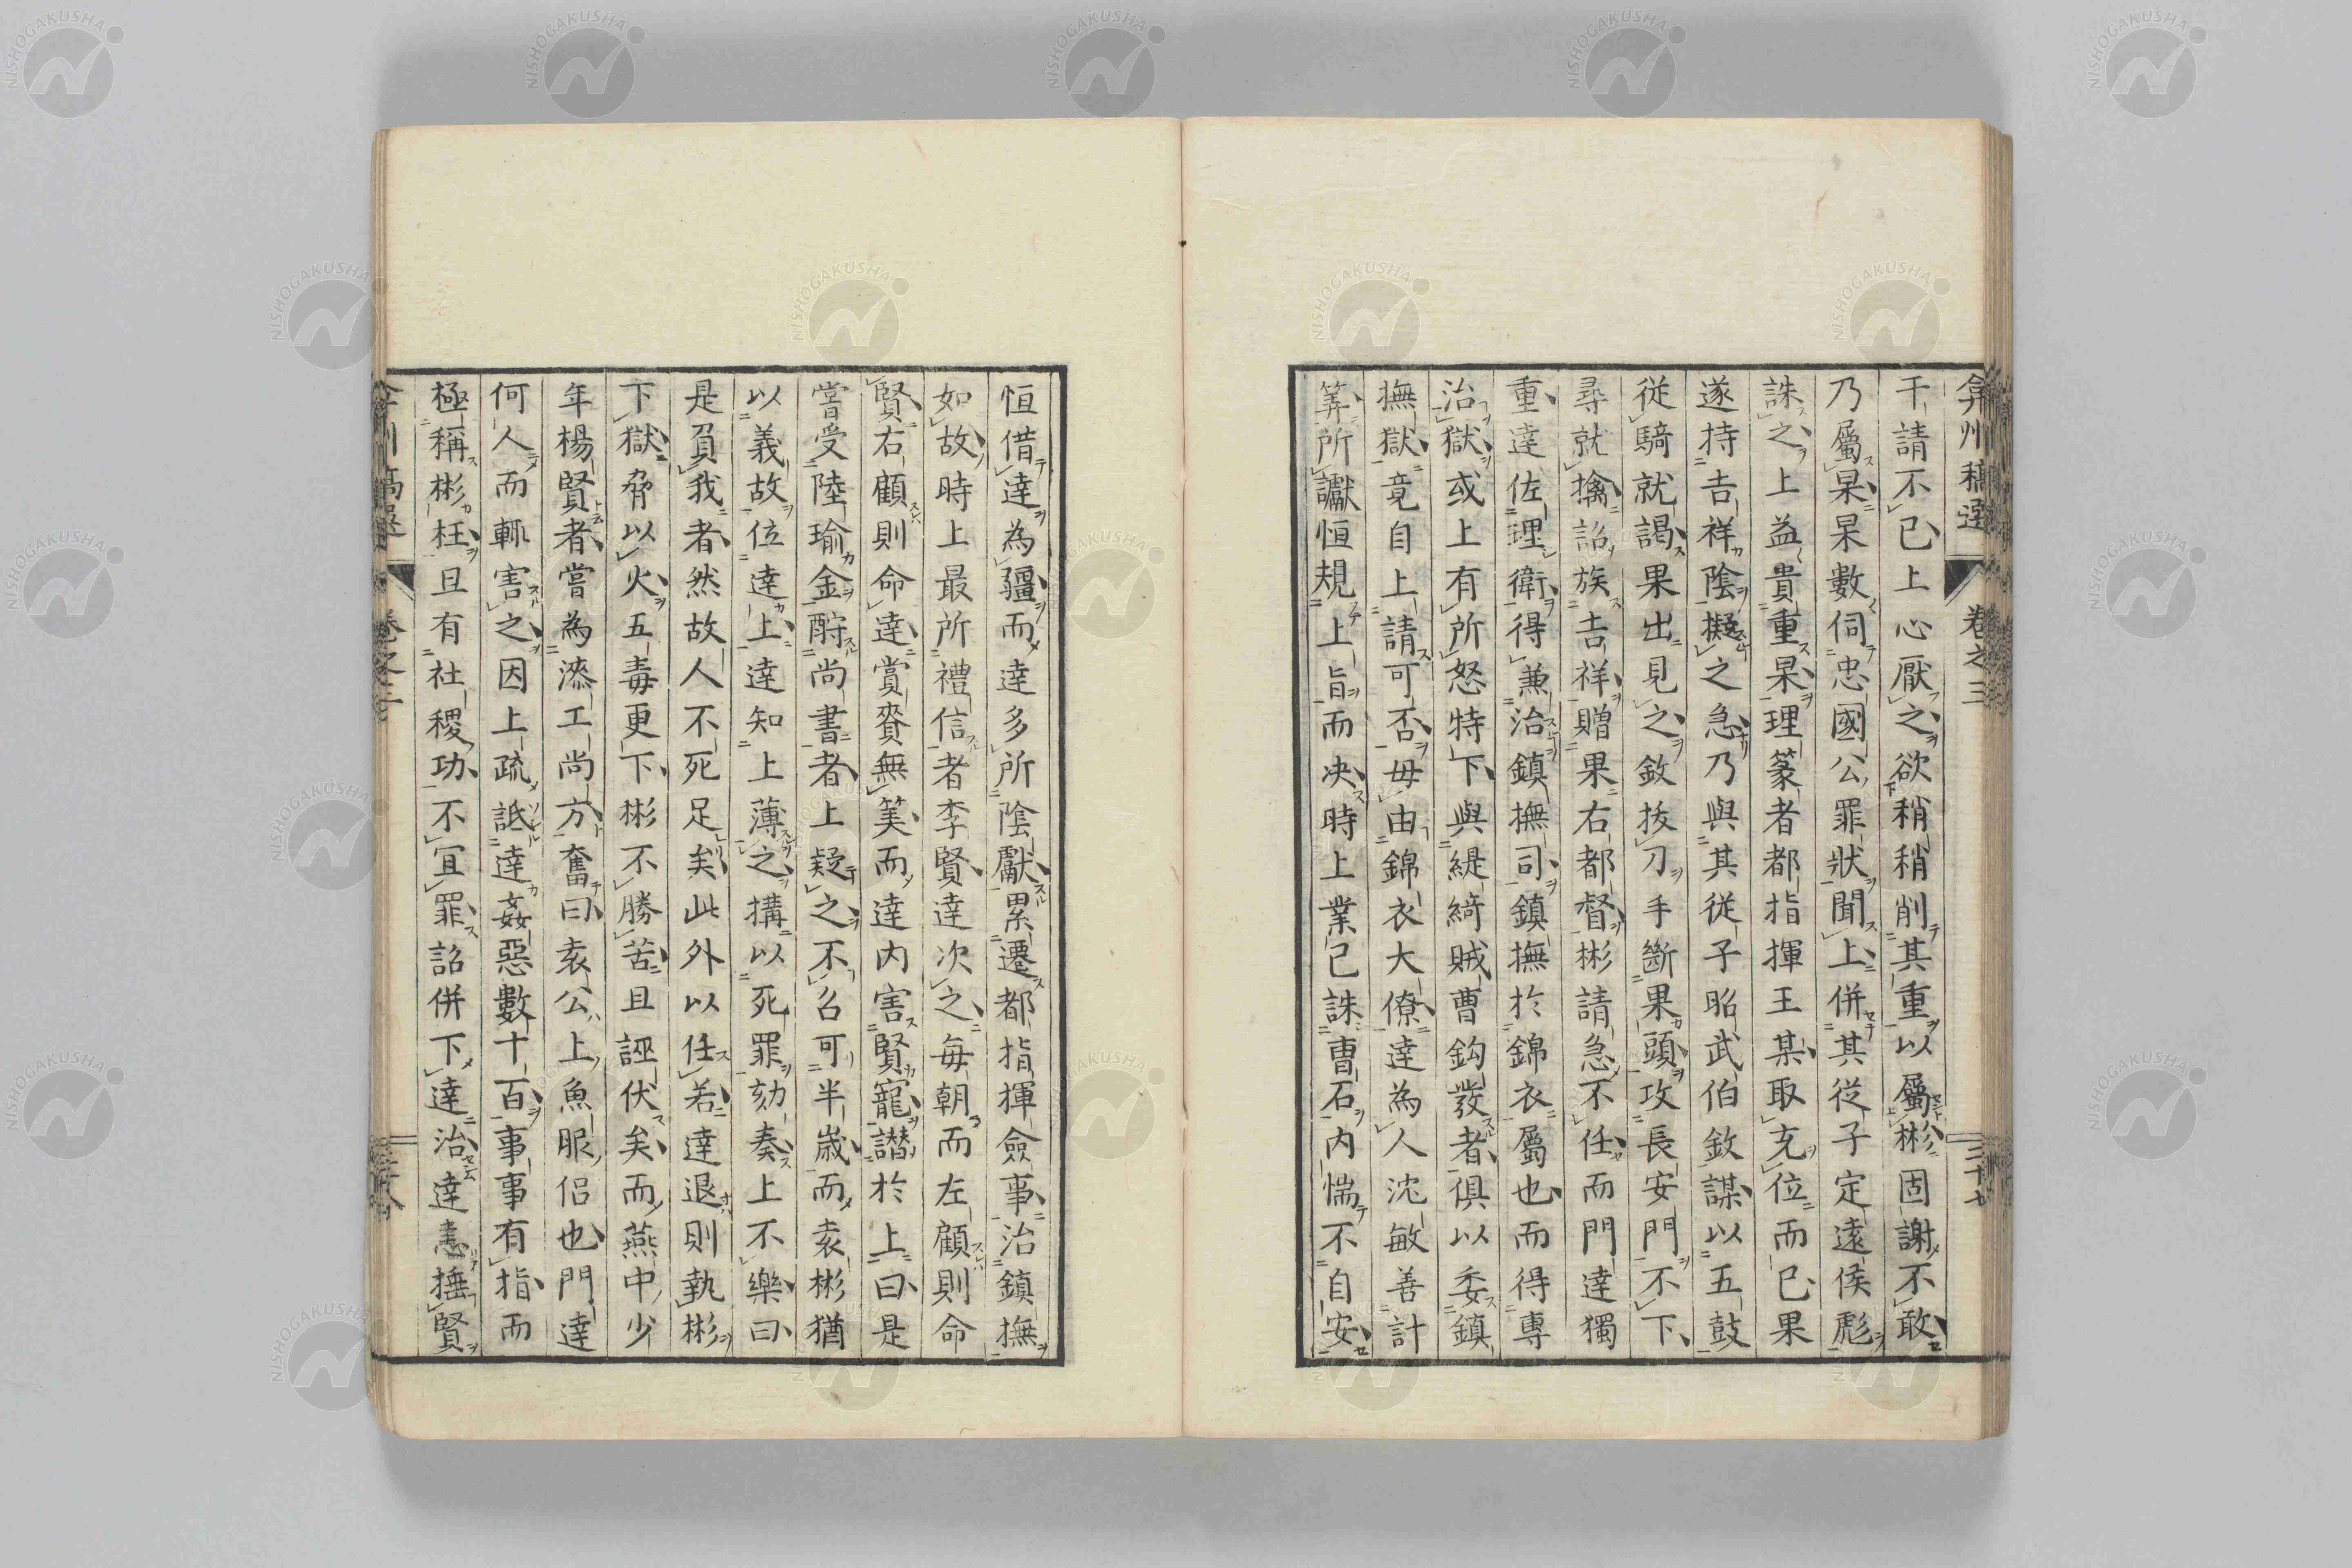 弇州稿選 卷之三 三十七
干請不已上心厭之欲稍稍削其重以屬彬固謝不敢
乃屬杲杲數伺忠國公罪狀聞上併其從子定遠侯彪
誅之上益貴重杲理篆者都指揮王某取充位而已果
遂持吉祥陰擬之急乃與其從子昭武伯欽謀以五鼓
從騎就謁果出見之欽拔刀手斷果頭攻長安門不下
尋就擒詔族吉祥贈果右都督彬請急不任而門達獨
重達佐理衛得兼治鎮撫司鎮撫於錦衣屬也而得專
治獄或上有所怒特下與緹綺賊曹鈎發者俱以委鎮
撫獄竟自上請可否毋由錦衣大僚達為人沈敏善計
筭所讞恒規上旨而决時上業已誅曹石內惴不自安
恒借達為彊而達多所陰獻累遷都指揮僉事治鎮撫
如故時上最所禮信者李賢達次之每朝而左顧則命
賢右顧則命達賞賚無筭而達內害賢寵譖於上曰是
嘗受陸瑜金酧尚書者上疑之不召可半歲而袁彬猶
以義故位達上達知上薄之搆以死罪劾奏上不樂曰
是負我者然故人不死足矣此外以任若達退則執彬
下獄脅以火五毒更下彬不勝苦且誣伏矣而燕中少
年楊賢者嘗為漆工尚方奮曰袁公上魚服侶也門達
何人而輒害之因上疏詆達姦惡數十百事事有指而
極稱彬枉且有社稷功不宜罪詔併下達治達恚捶賢